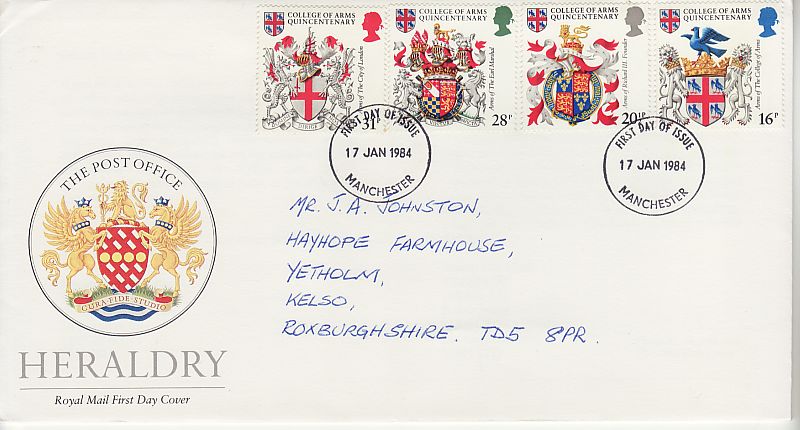 COLLEGE OF ARMS
QUINCENTENARY
Arms of The City of London
31P
COLLEGE OF ARMS
QUINCENTENARY
Arms of The Earl Marshal
28P
COLLEGE OF ARMS
QUINCENTENARY
Arms of Richard III, Founder
20½P
COLLEGE OF ARMS
QUINCENTENARY
Arms of The College of Arms
16P
FIRST DAY OF ISSUE
17 JAN 1984
MANCHESTER
FIRST DAY OF ISSUE
17 JAN 1984
MANCHESTER
THE POST OFFICE
CURA·FIDE·STUDIO
HERALDRY
Royal Mail First Day Cover
MR. J.A. JOHNSTON,
HAYHOPE FARMHOUSE,
YETHOLM,
KELSO,
ROXBURGHSHIRE. TD5 8PR.